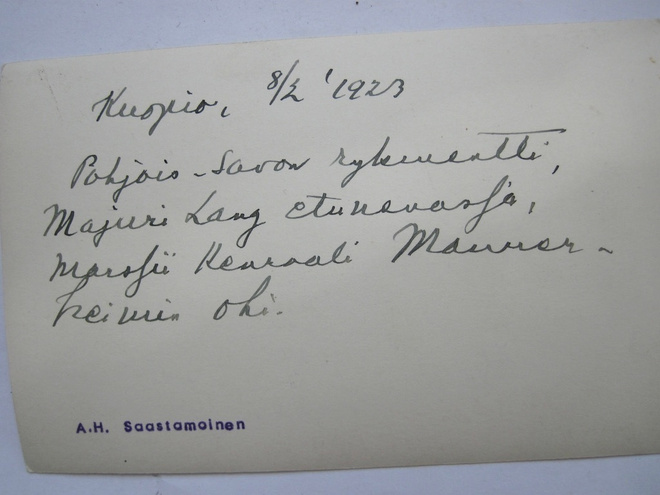 Kuopio, 8/2 '1923
Pohjois-Savon rykmentti,
Majuri Lang etunenässä,
marssii Kenraali Manner-
heimin ohi.
A.H. Saastamoinen